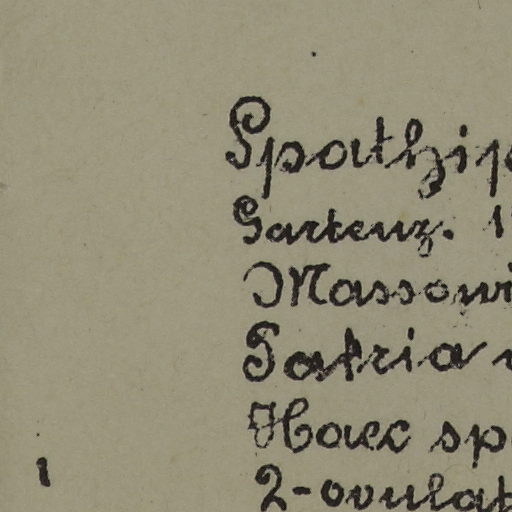 Spathip
Gartenz. 1
Massowi
Patria
Haec sp
1
2-ovulat